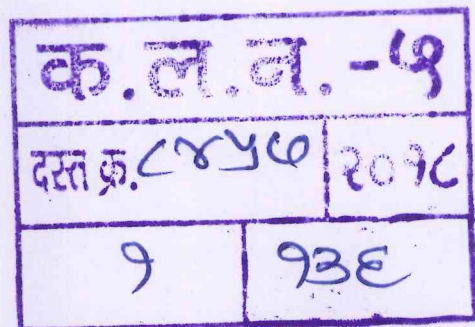 क.ल.न.-५
दस्त क्र. ८४५७ २०१८
१ १३६